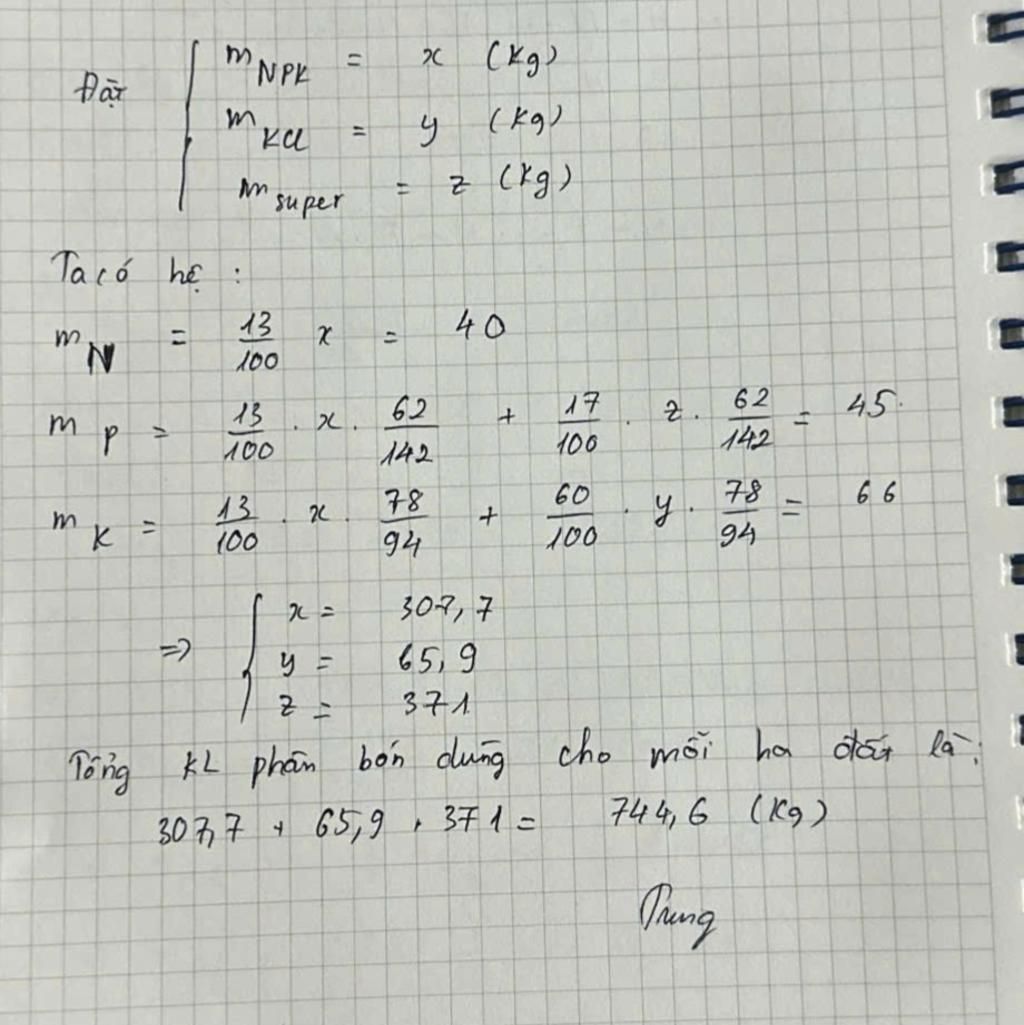 Đặt { m NPK = x (kg)
m KCl = y (kg)
m super = z (kg)
Ta có hệ :
m N = 13/100 x = 40
m P = 13/100 . x . 62/142 + 17/100 . z . 62/142 = 45.
m K = 13/100 . x . 78/94 + 60/100 . y . 78/94 = 66
=> { x = 307,7
y = 65,9
z = 371
Tổng KL phân bón dùng cho mỗi ha đất là:
307,7 + 65,9 + 371 = 744,6 (kg)
Trung